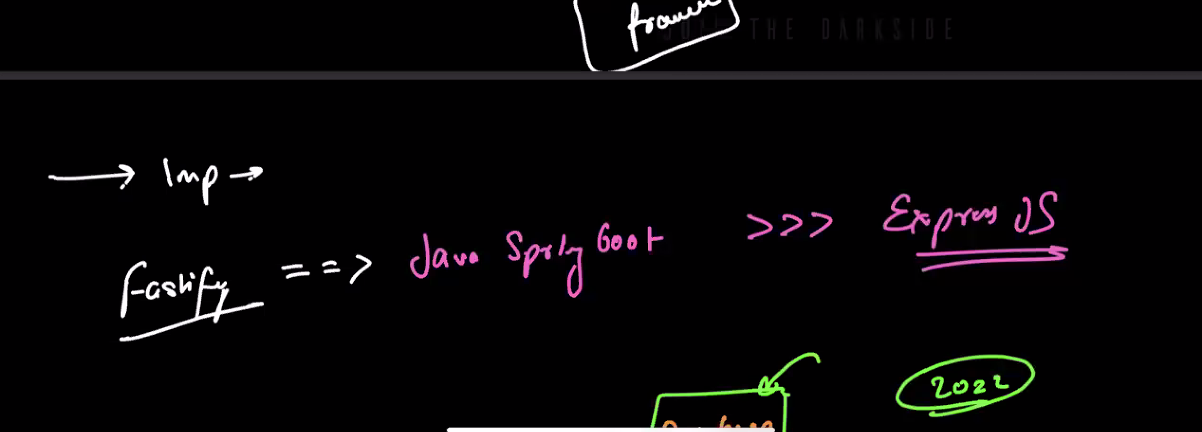 THE DARKSIDE
→ Imp →
Fastify ==> Java Spring Boot >>> Express JS
2022